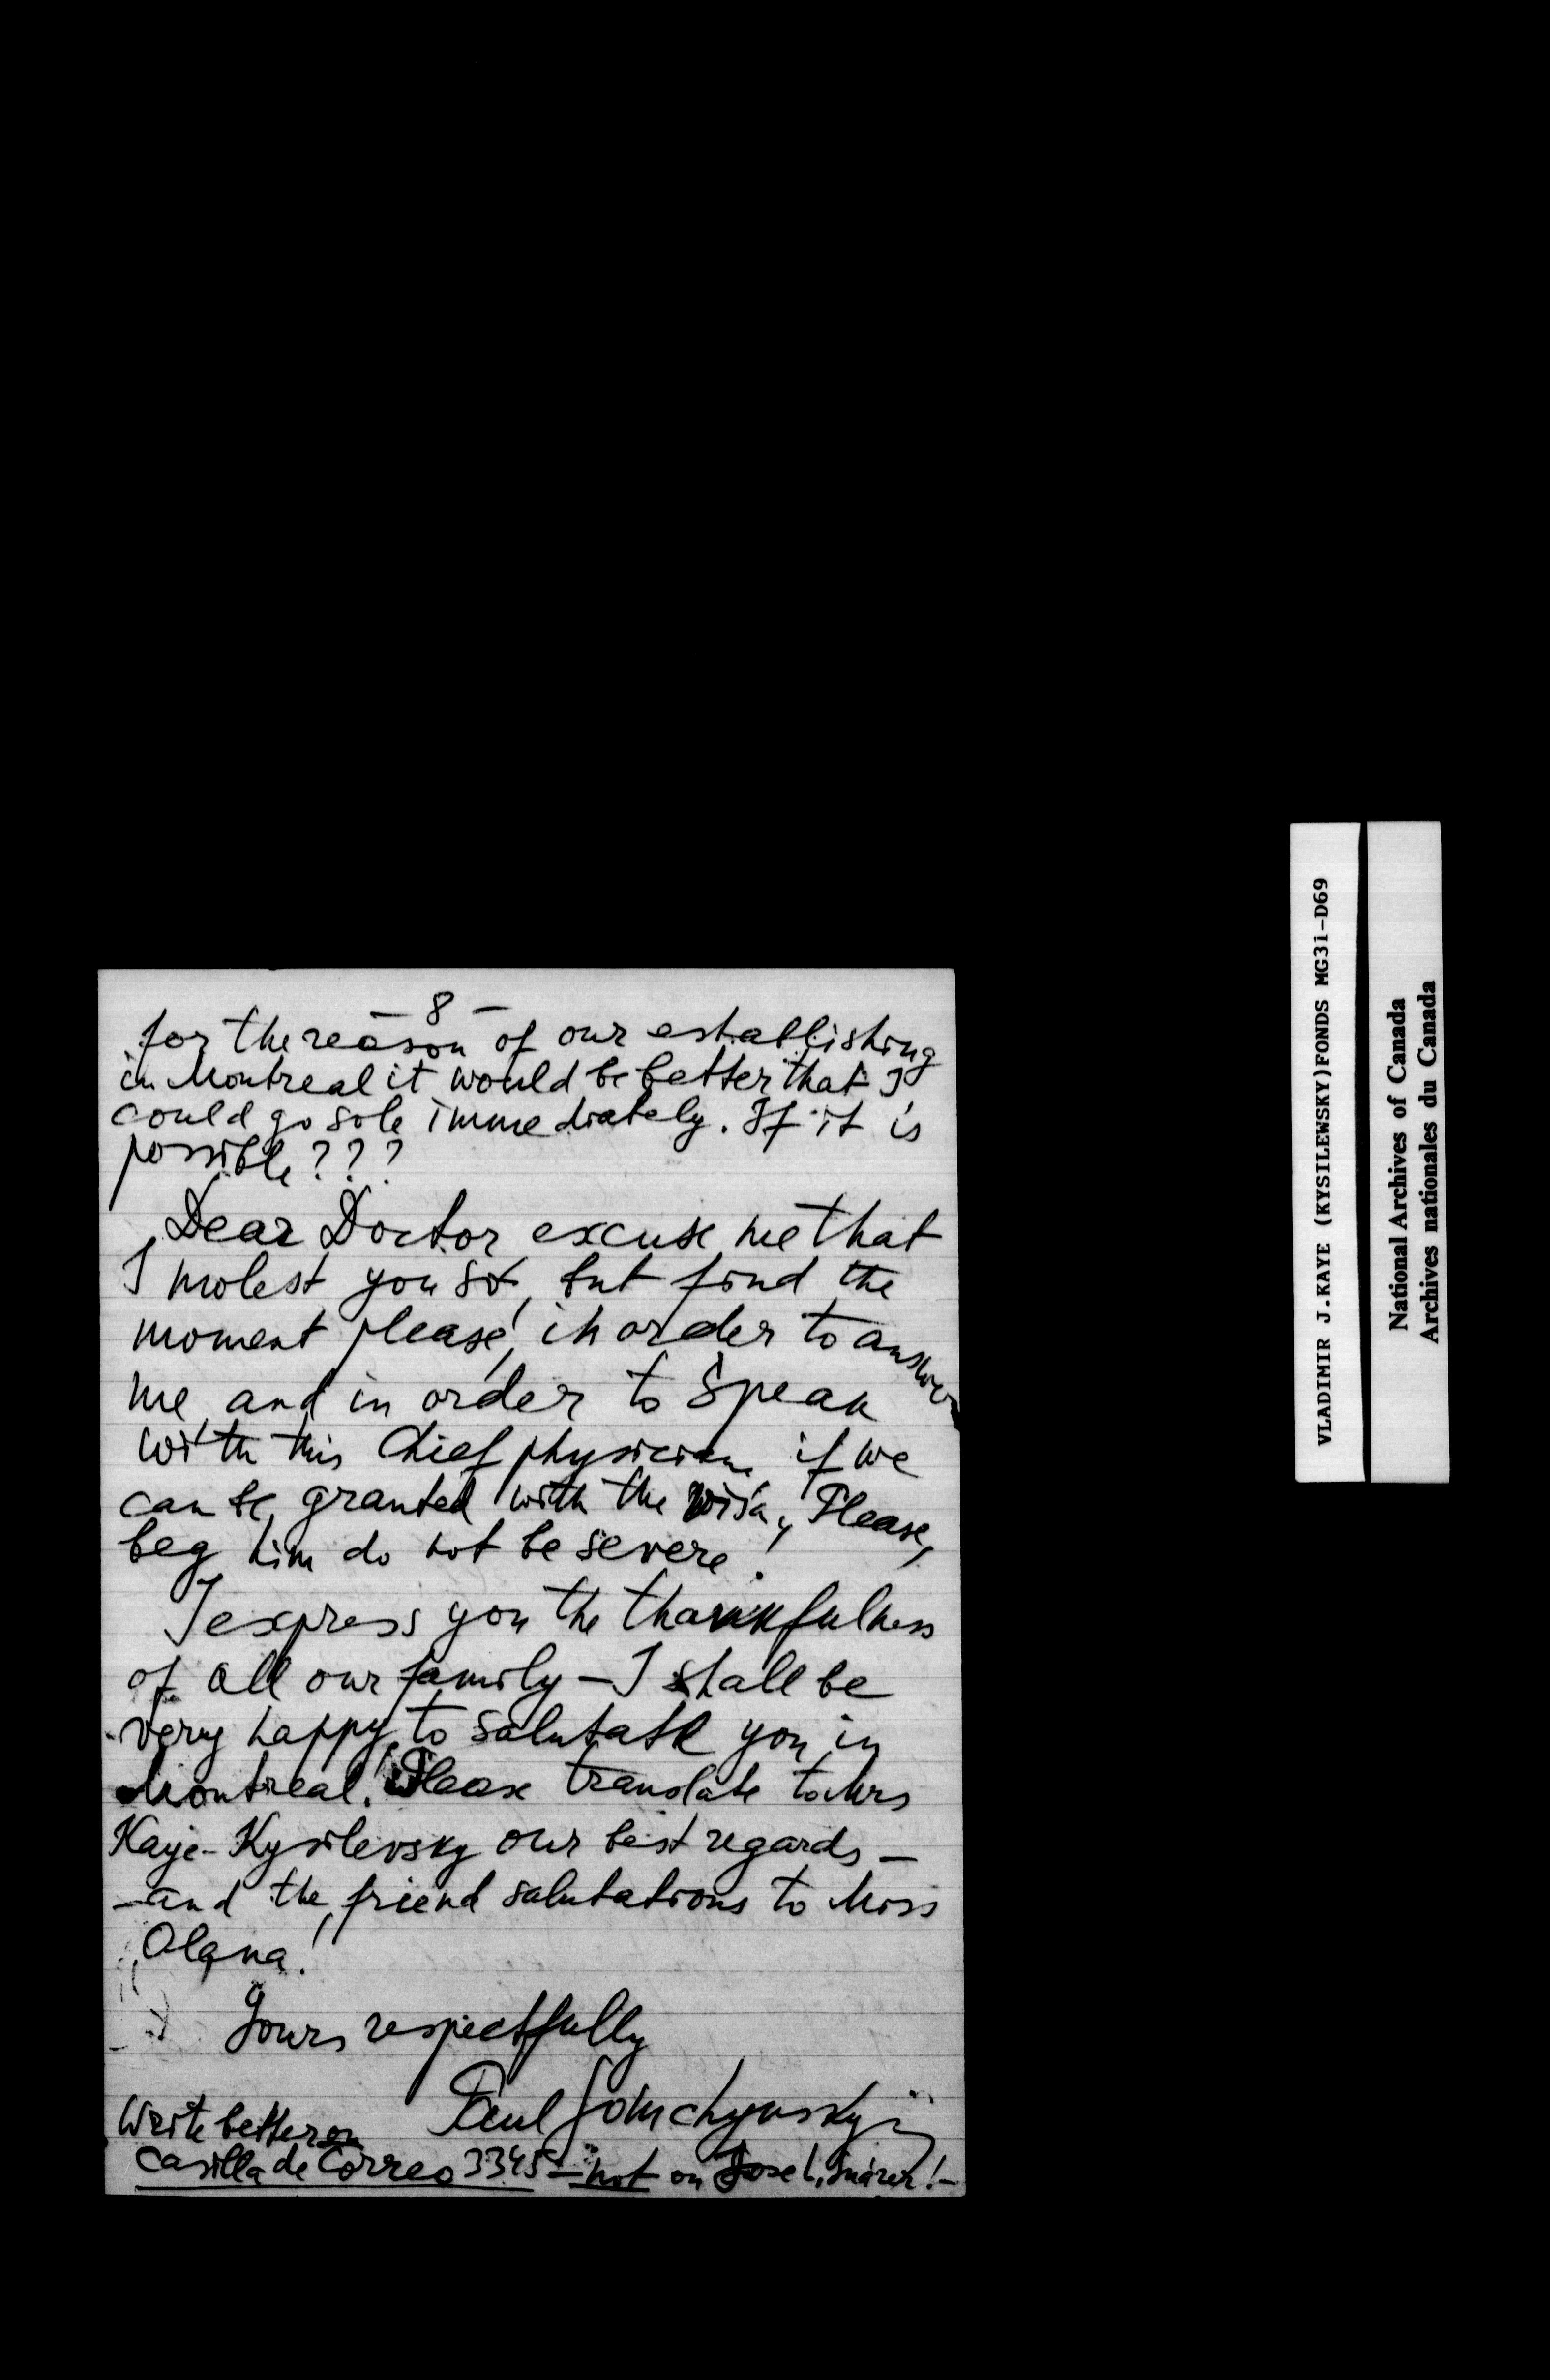 - 8 -
for the reason of our establishing
in Montreal it would be better that I
could go sole immediately. If it is
possible???
Dear Doctor excuse me that
I molest you so, but find the
moment please, in order to answer
me and in order to speak
with this Chief physician if we
can be granted with the visa, Please,
beg him do not be severe!
I express you the thankfulness
of all our family - I shall be
very happy to salutate you in
Montreal! Please translate to Mrs
Kaye-Kysilevsky our best regards -
- and the friend salutations to Miss
Olana!
Yours respectfully
Paul
Write better on
Casilla de Correo 3345 - not on Jose L. Suárez! -
VLADIMIR J.KAYE (KYSILEWSKY)FONDS MG31-D69
National Archives of Canada
Archives nationales du Canada